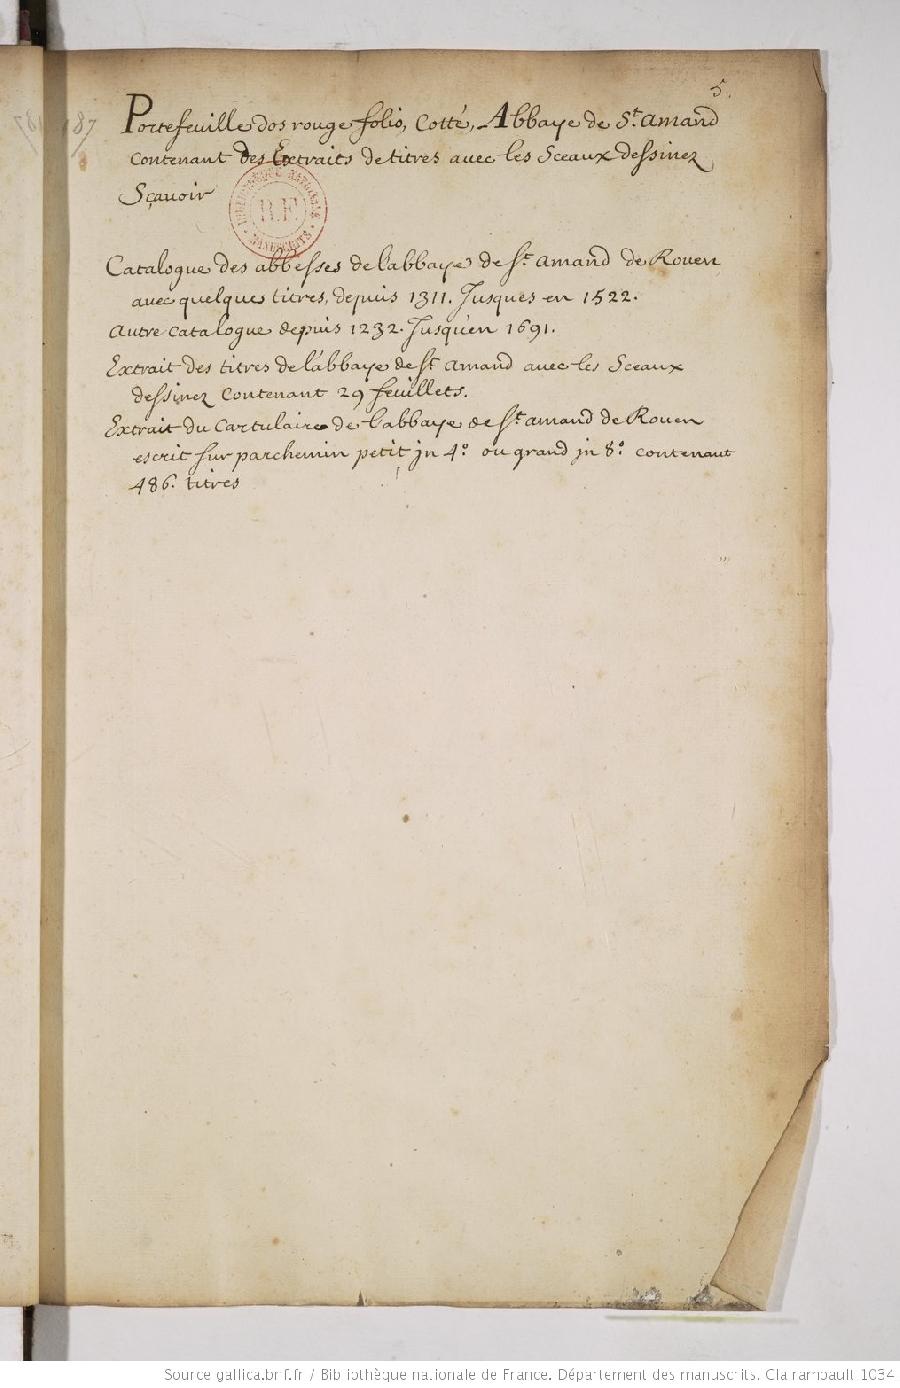 5.
187
Portefeuille dos rouge folio, Cotté, Abbaye de St. amand
contenant des Extraits de titres avec les Sceaux dessinez
Sçavoir
BIBLIOTHEQUE NATIONALE
R.F.
MANUSCRITS
Catalogue des abbesses de l'abbaye de St. amand de Rouen
avec quelques titres, depuis 1311. Jusques en 1522.
autre catalogue depuis 1232. Jusqu'en 1691.
Extrait des titres de l'abbaye de St amand avec les Sceaux
dessinez contenant 29 feuillets.
Extrait du Cartulaire de l'abbaye de St. amand de Rouen
escrit sur parchemin petit jn 4.º ou grand jn 8.º contenant
486. titres
Source gallica.bnf.fr / Bibliothèque nationale de France. Département des manuscrits. Clairambault 1034